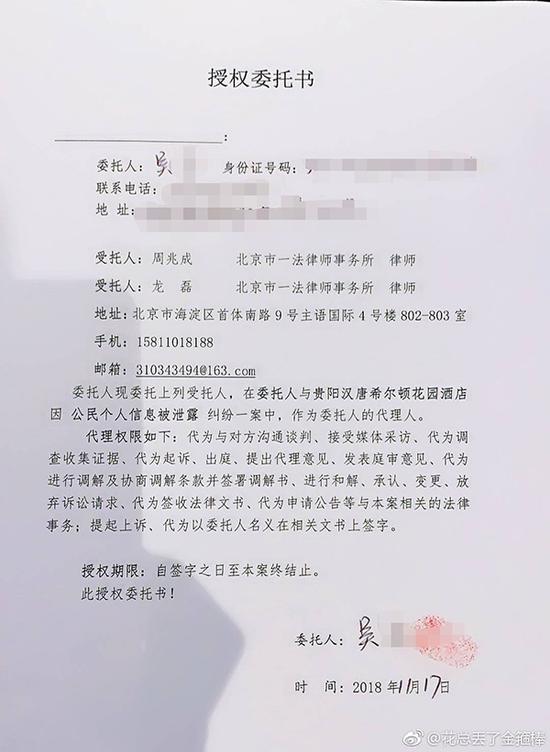 授权委托书
：
委托人：吴 身份证号码：
联系电话：
地 址：
受托人：周兆成 北京市一法律师事务所 律师
受托人：龙 磊 北京市一法律师事务所 律师
地址：北京市海淀区首体南路9号主语国际4号楼802-803室
手机：15811018188
邮箱：310343494@163.com
委托人现委托上列受托人，在委托人与贵阳汉唐希尔顿花园酒店
因 公民个人信息被泄露 纠纷一案中，作为委托人的代理人。
代理权限如下：代为与对方沟通谈判、接受媒体采访、代为调
查收集证据、代为起诉、出庭、提出代理意见、发表庭审意见、代为
进行调解及协商调解条款并签署调解书、进行和解、承认、变更、放
弃诉讼请求、代为签收法律文书、代为申请公告等与本案相关的法律
事务；提起上诉、代为以委托人名义在相关文书上签字。
授权期限：自签字之日至本案终结止。
此授权委托书！
委托人：吴
时 间：2018年11月17日
@花总丢了金箍棒